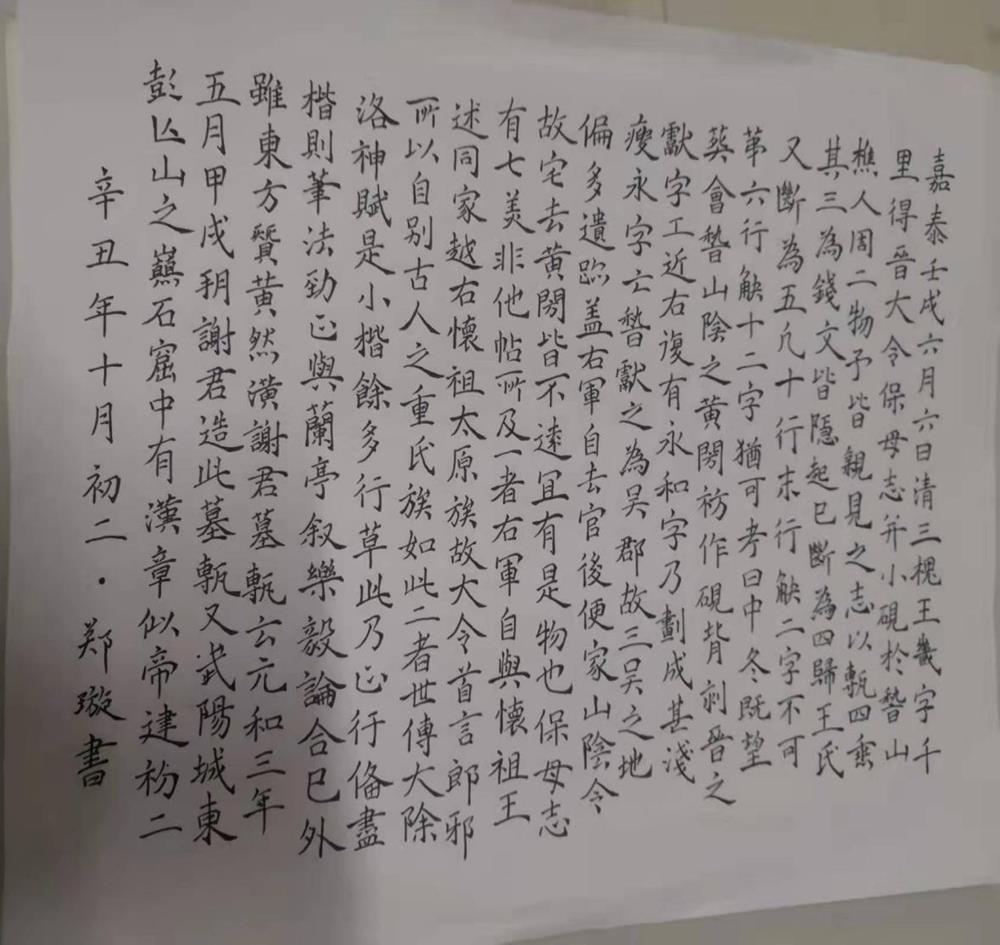 嘉泰壬戌六月六日清三槐王畿字千
里得晉大令保母志并小硯於嵇山
樵人周二物予皆親見之志以甎四垂
其三為錢文皆隱起已斷為四歸王氏
又斷為五凢十行末行觖二字不可
苐六行觖十二字猶可考曰中冬既望
葬會嵇山陰之黃閍硯背刻晉之
獻字工近右復有永和字乃劃成甚淺
瘦永字亡嵇獻之為吴郡故三吴之地
偏多遺跡盖右軍自去官後便家山陰今
故宅去黃閍皆不遠冝有是物也保母志
有七美非他帖所及一者右軍自與懷祖王
述同家越右懷祖太原族故大令首言郎邪
所以自别古人之重氏族如此二者世傳大除
洛神賦是小楷餘多行草此乃正行俻盡
楷則筆法勁正與蘭亭叙樂毅論合已外
雖東方贊黃然潢謝君墓甎云元和三年
五月甲戌朔謝君造此墓甎又武陽城東
彭亾山之巔石窟中有漢章似帝建初二
辛丑年十月初二·郑璇書